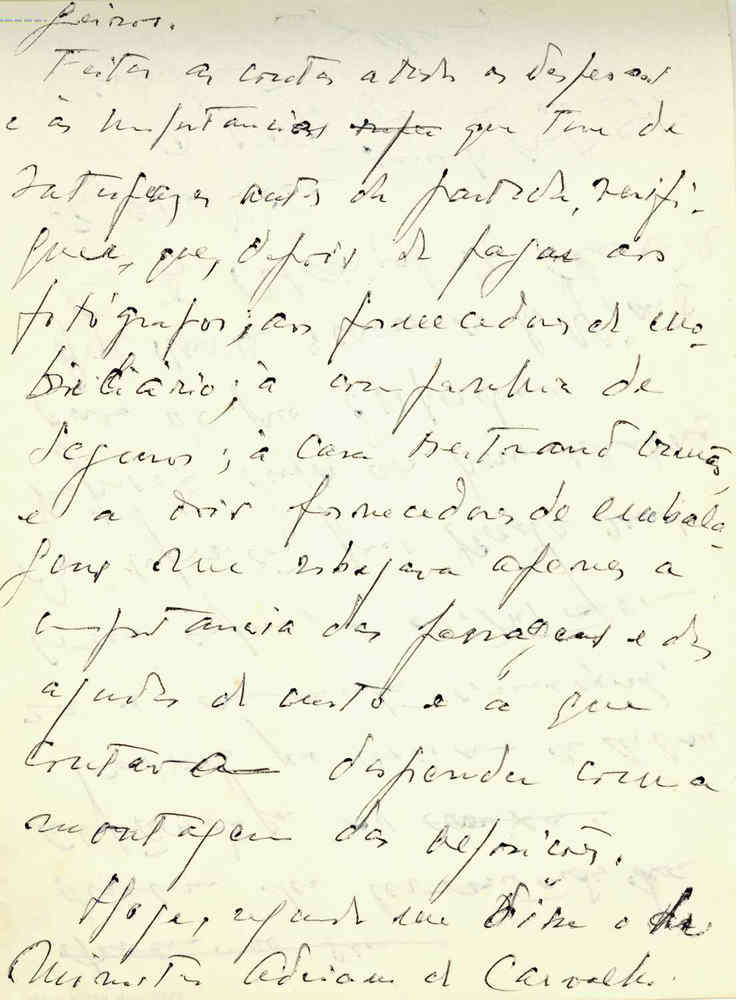 geiros.
Feitas as contas a todas as despesas
e às importancias que tem de
satisfazer antes da partida, verifi-
quei, que, depois de pagar aos
fotógrafos; aos fornecedores de mo-
biliário; à companhia de
Seguros; à casa Bertrand Irmãos,
e a dois fornecedores de embala-
gens me sobejava apenas a
importancia das passagens e das
ajudas de custo e a que
contava despender com a
montagem das exposições.
Hoje, segundo me disse o
Ministro Adriano de Carvalho.